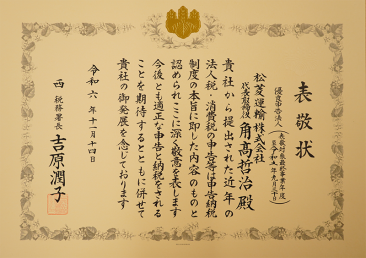 表敬状
優良申告法人
松菱運輸株式会社
代表取締役 角高哲治 殿
貴社から提出された近年の
法人税・消費税の申告等は申告納税
制度の本旨に即した内容のものと
認められここに深く敬意を表します
今後とも適正な申告と納税をされる
ことを期待するとともに併せて
貴社の御発展を念じております
令和六年十一月十四日
西 税務署長 吉原潤子